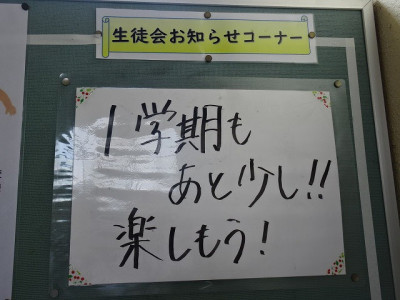 生徒会お知らせコーナー
1学期も
あと少し!!
楽しもう!